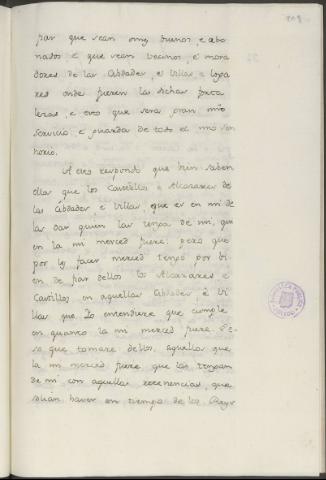 par que sean omes buenos, e abo-
nados e que sean vecinos, e mora-
dores de las Cibdades, e Villas e loga-
res onde fueren las dichas forta-
lezas, e esto que será gran mio
servicio e guarda de todo el mio Seno-
norio.
A esto respondo que bien saben
ellos que los Castillos e Alcazares de
las Cibdades e Villas, que es en mi de
las dar quien las tenga de mi, que
en la mi merced fuere, pero que
por les facer merced tengo por bi-
en de dar dellos los Alcazares e
Castillos en aquellas Cibdades e Vi-
llas que Yo entendiere que cumple
en quanto la mi merced fuere. Pe-
ro que tomare dellos, aquellos que
la mi merced fuere que las tengan
de mi con aquellas retenencias que
solian haver en tiempo de los Reyes